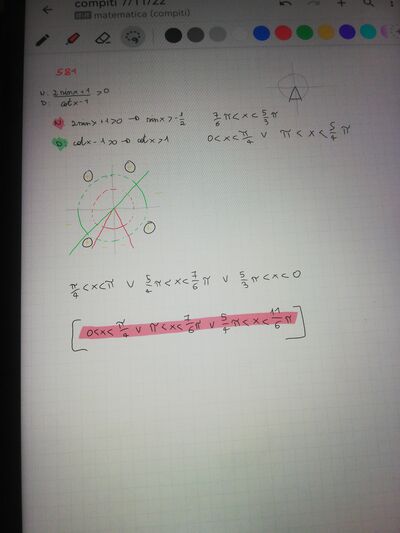 compiti 7/11/22
matematica (compiti)
581
N: 2sinx+1 >0
D: cotx-1
N: 2sinx+1>0 → sinx>-1/2 7/6 π<x<5/3 π
D: cotx-1>0 → cotx>1 0<x<π/4 ∨ π<x<5/4 π
π/4<x<π ∨ 5/4 π<x<7/6 π ∨ 5/3 π<x<0
[0<x<π/4 ∨ π<x<7/6 π ∨ 5/4 π<x<11/6 π]